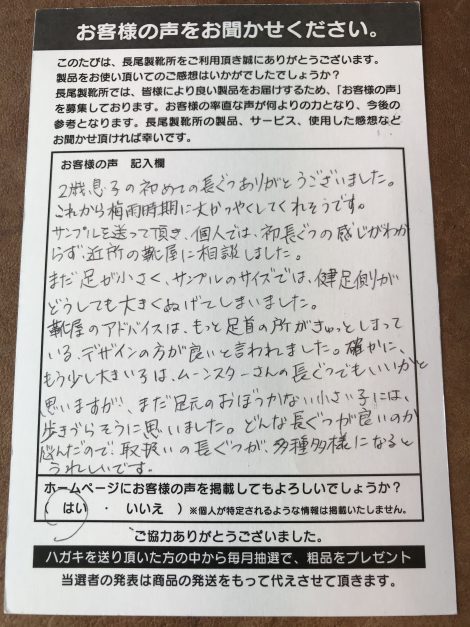 お客様の声をお聞かせください。
このたびは、長尾製靴所をご利用頂き誠にありがとうございます。
製品をお使い頂いてのご感想はいかがでしたでしょうか？
長尾製靴所では、皆様により良い製品をお届けするため、「お客様の声」
を募集しております。お客様の率直な声が何よりの力となり、今後の
参考となります。長尾製靴所の製品、サービス、使用した感想など
お聞かせ頂ければ幸いです。
お客様の声 記入欄
2歳息子の初めての長ぐつありがとうございました。
これから梅雨時期に大かつやくしてくれそうです。
サンプルを送って頂き、個人では、初長ぐつの感じがわか
らず近所の靴屋に相談しました。
まだ足が小さく、サンプルのサイズでは、健足側が
どうしても大きくぬげてしまいました。
靴屋のアドバイスは、もっと足首の所がきゅっとしまって
いる、デザインの方が良いと言われました。確かに、
もう少し大きい子は、ムーンスターさんの長ぐつでもいいかと
思いますが、まだ足元のおぼつかない小さい子には、
歩きづらそうに思いました。どんな長ぐつが良いのか
悩んだので、取扱いの長ぐつが、多種多様になると
うれしいです。
ホームページにお客様の声を掲載してもよろしいでしょうか？
（ はい ・ いいえ ）※個人が特定されるような情報は掲載いたしません。
ご協力ありがとうございました。
ハガキを送り頂いた方の中から毎月抽選で、粗品をプレゼント
当選者の発表は商品の発送をもって代えさせて頂きます。